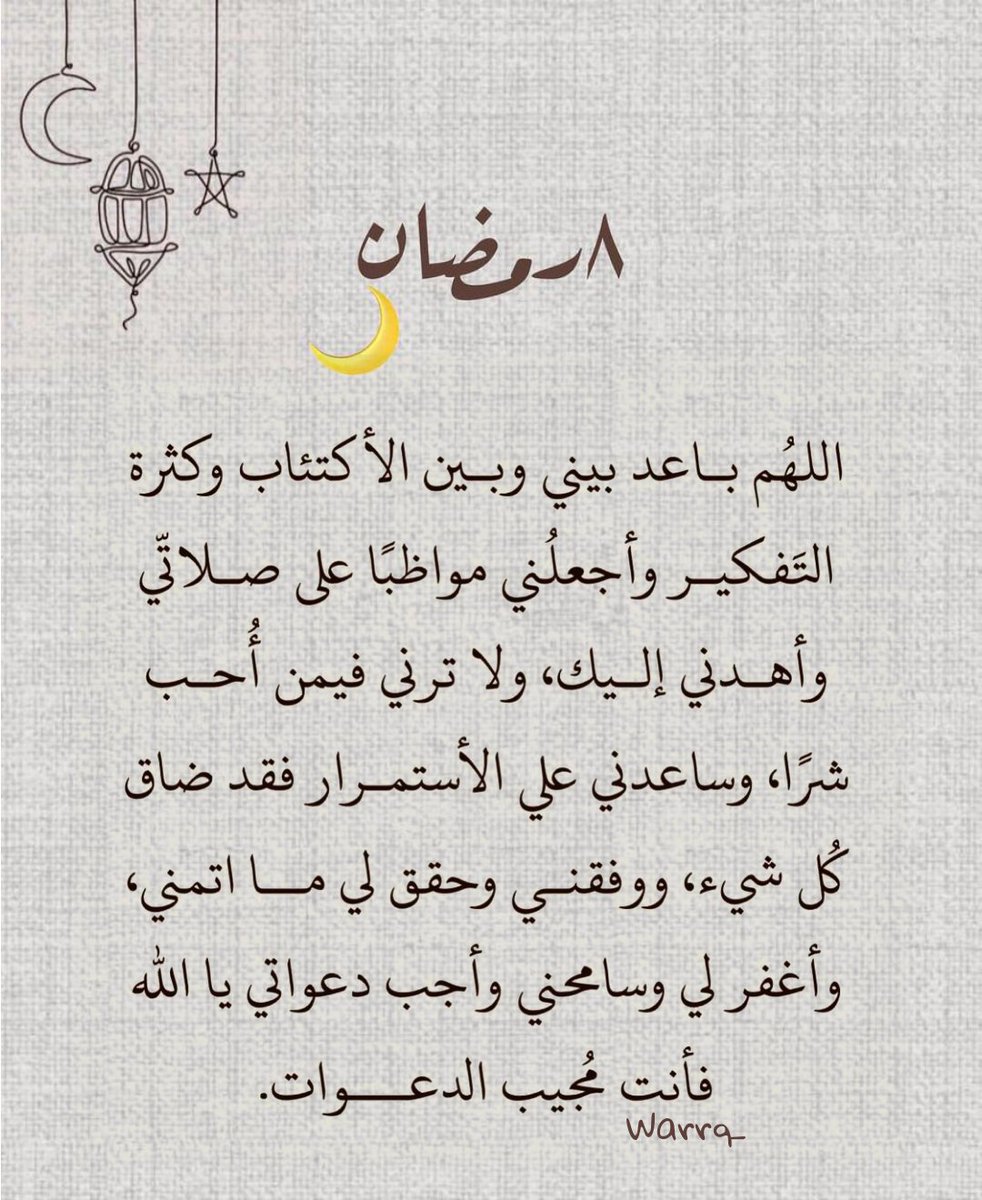 ٨رمضان
اللهُم بـاعد بيني وبـين الأكتئاب وكثرة
التَفكيـر وأجعلُني مواظبًا على صـلاتّي
وأهـدني إلـيك، ولا ترني فيمن أُحـب
شرًا، وساعدني علي الأستمـرار فقد ضاق
كُل شيء، ووفقنـي وحقق لي مـا اتمني،
وأغفر لي وسامحني وأجب دعواتي يا الله
فأنت مُجيب الدعـوات.
Warrq